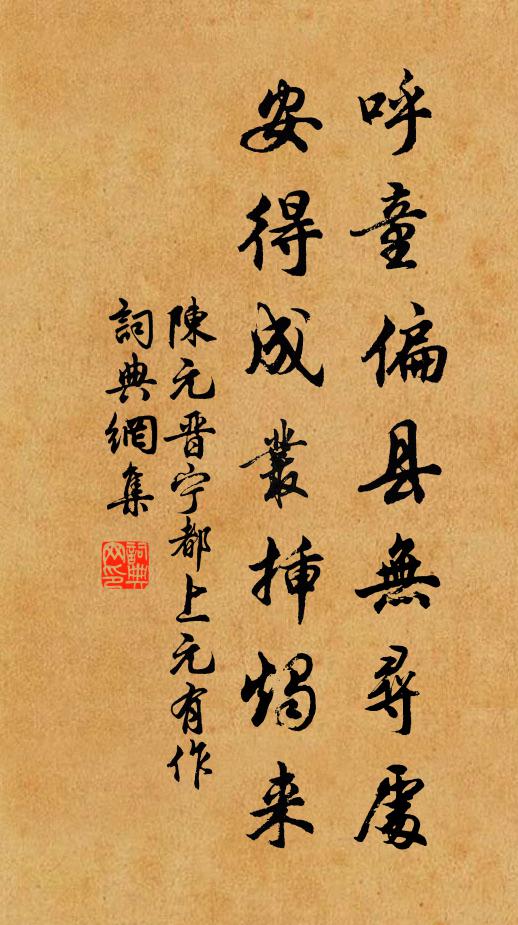 呼童偏县無尋處
安得成叢插燭来
陳元晋宁都上元有作
詞典網集
詞典網印